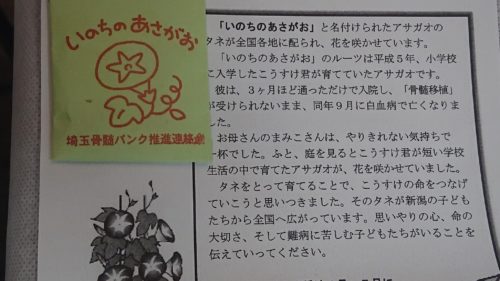 いのちのあさがお
埼玉骨髄バンク推進連絡会
「いのちのあさがお」と名付けられたアサガオの
タネが全国各地に配られ、花を咲かせています。
「いのちのあさがお」のルーツは平成５年、小学校
に入学したこうすけ君が育てていたアサガオです。
彼は、３ヶ月ほど通っただけで入院し、「骨髄移植」
が受けられないまま、同年９月に白血病で亡くなりま
した。
お母さんのまみこさんは、やりきれない気持ちで
一杯でした。ふと、庭を見るとこうすけ君が短い学校
生活の中で育てたアサガオが、花を咲かせていました。
タネをとって育てることで、こうすけの命をつなげ
ていこうと思いつきました。そのタネが新潟の子ども
たちから全国へ広がっています。思いやりの心、命の
大切さ、そして難病に苦しむ子どもたちがいることを
伝えていってください。